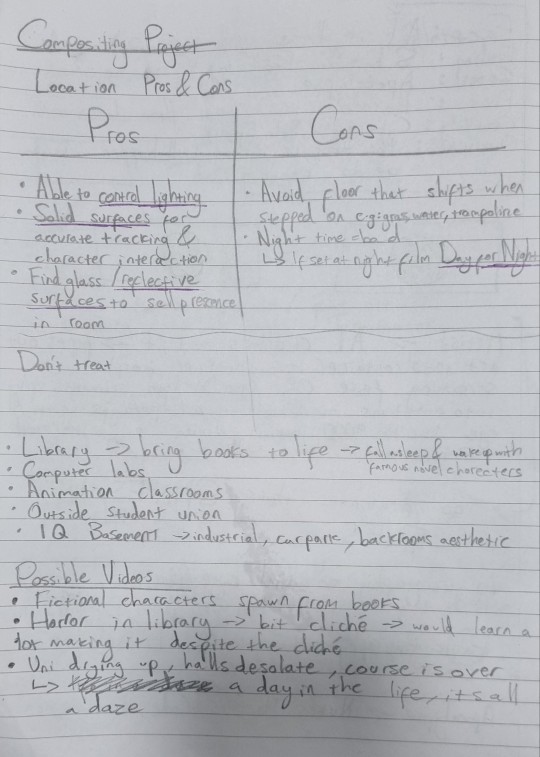 Compositing Project
Location Pros & Cons
Pros
Cons
• Able to control lighting
• Solid surfaces for
accurate tracking &
character interaction
• Find glass / reflective
surfaces to sell presence
in room
• Avoid floor that shifts when
stepped on e.g. grass, water, trampoline
• Night time = bad
↳ If set at night film Day for Night
Don't treat
• Library → bring books to life → fall asleep & wake up with
famous novel charecters
• Computer labs
• Animation classrooms
• Outside student union
• IQ Basement → industrial, carpark, backrooms aesthetic
Possible Videos
• Fictional characters spawn from books
• Horror in library → bit cliché → would learn a
lot making it despite the cliché
• Uni drying up, halls desolate, course is over
↳ a day in the life, it's all
a daze